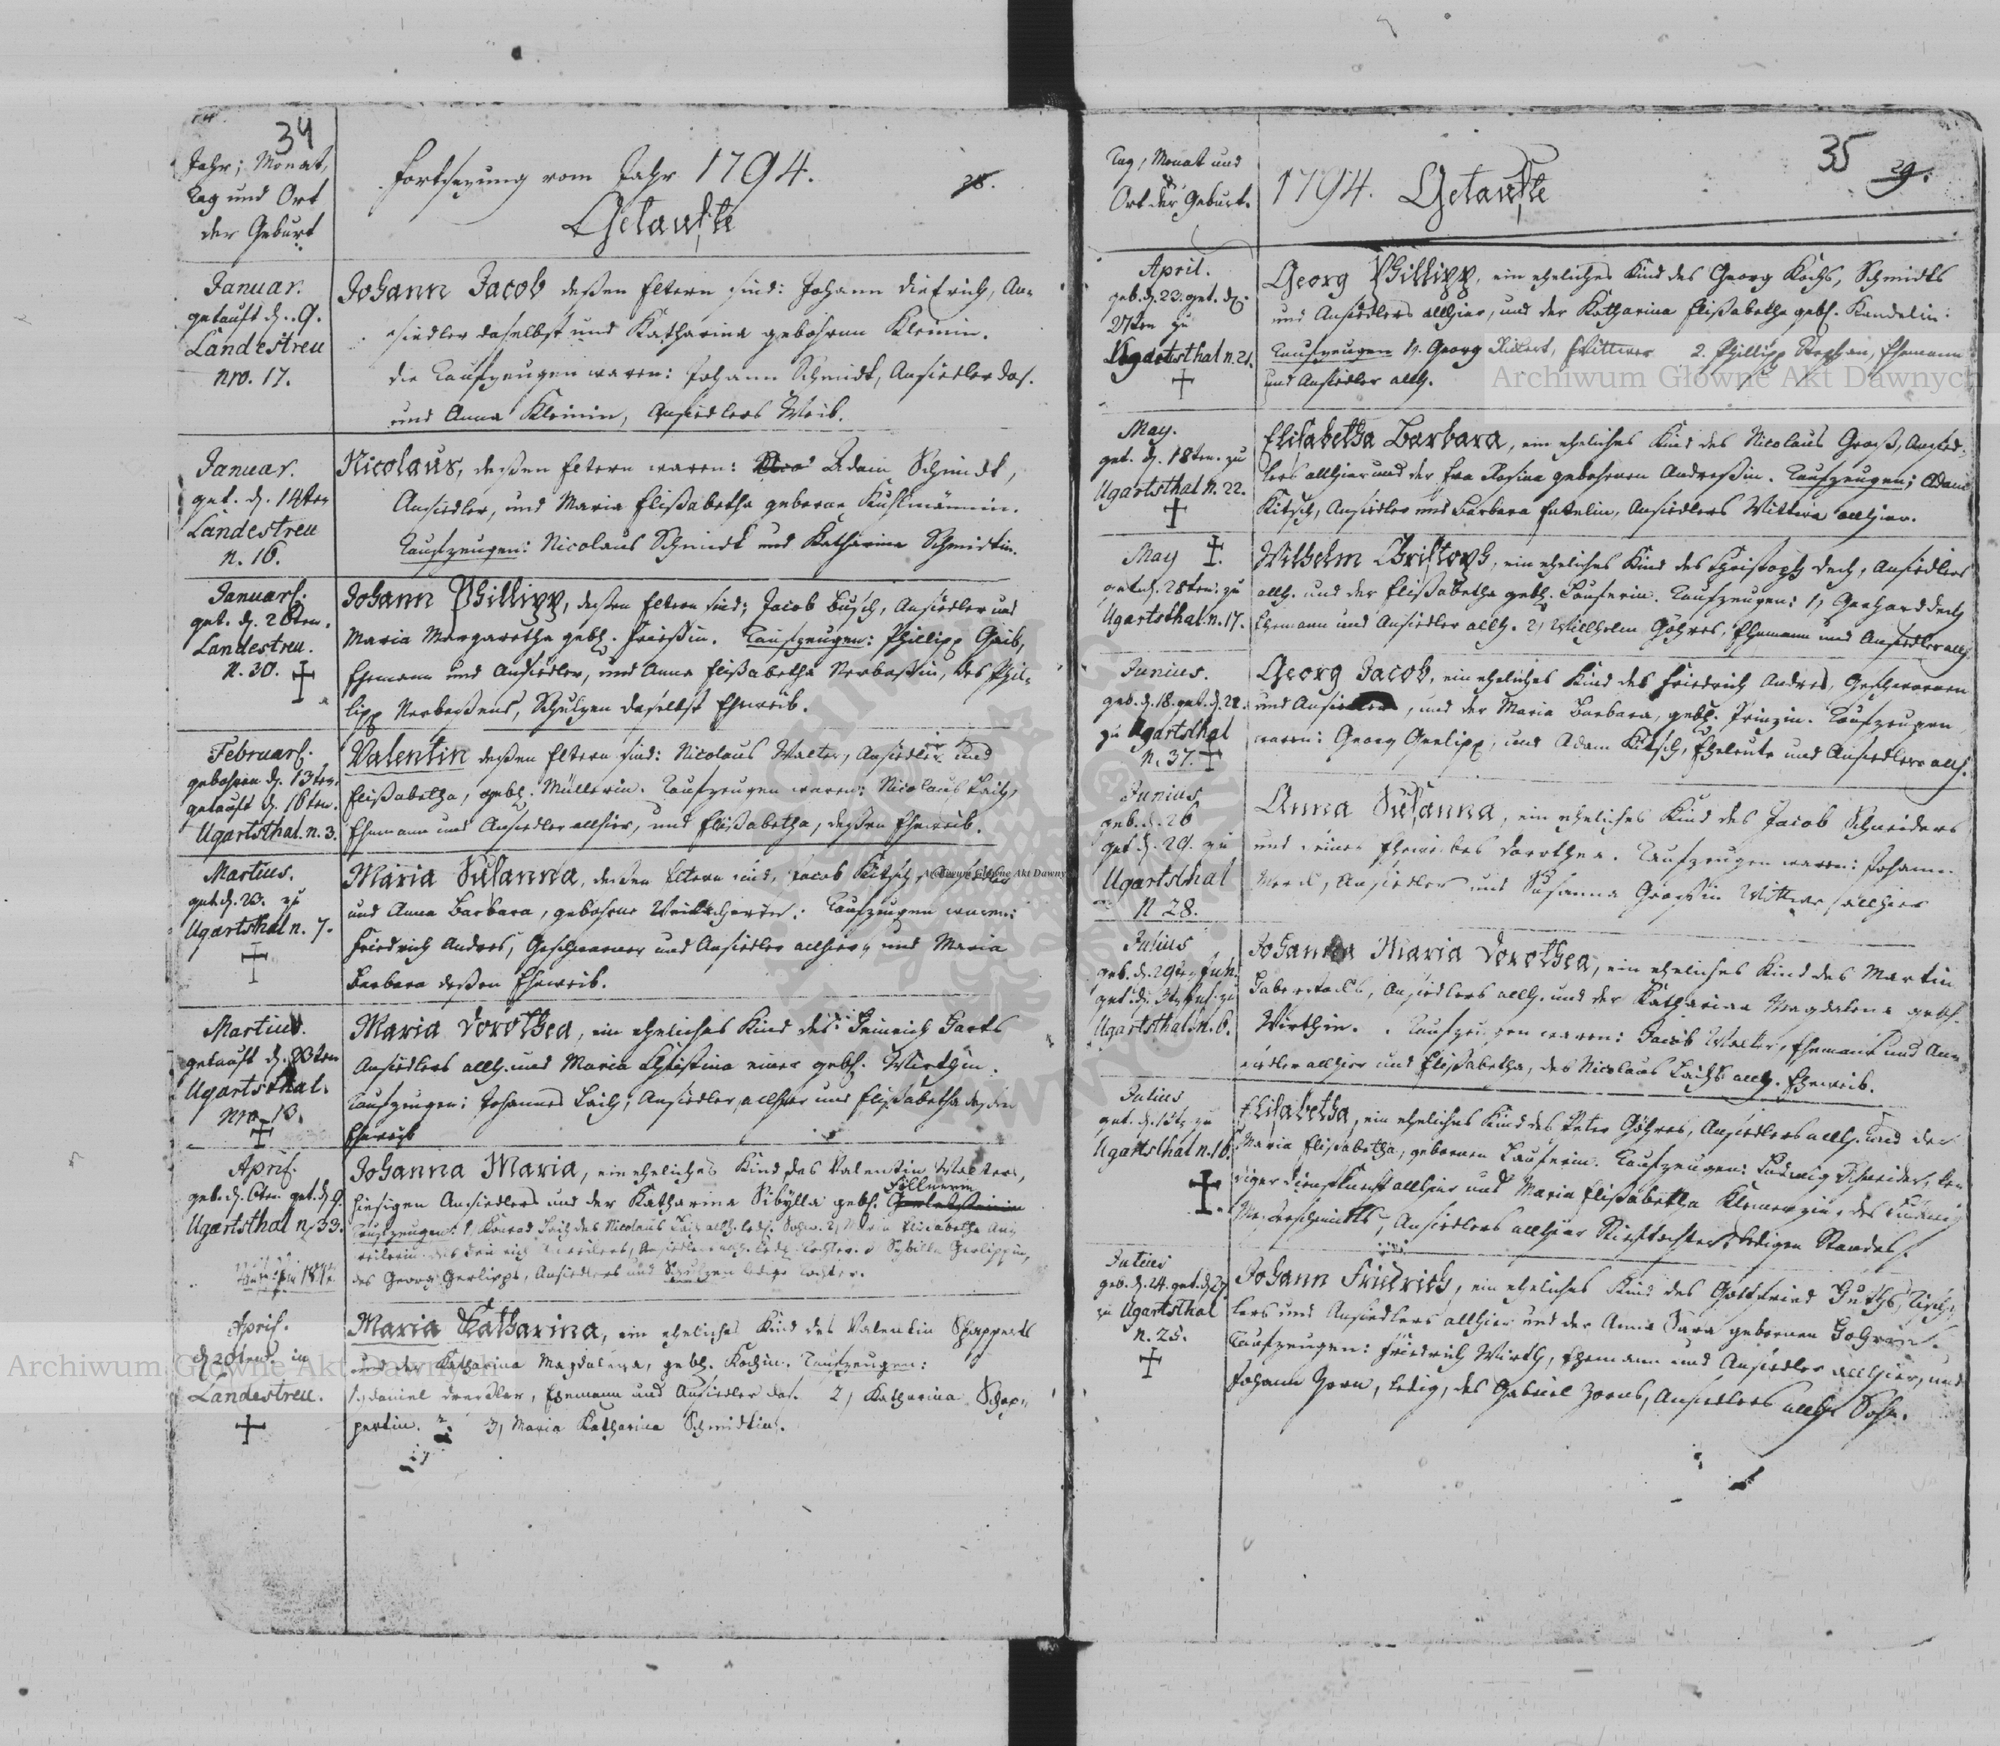 34
Jahr, Monat,
Tag und Ort
der Geburt
Fortsezung vom Jahr 1794.
28.
Getaufte
Januar.
getauft d. 9.
Landestreu
nro. 17.
Johann Jacob deßen Eltern sind: Johann Dietrich, An-
siedler daselbst und Katharina gebohrne Kleinin.
Die Taufzeugen waren: Johann Schmidt, Ansiedler das.
und Anna Kleinin, Ansiedlers Weib.
Januar.
get. d. 14ten
Landestreu
n. 16.
Nicolaus, deßen Eltern waren: Adam Schmidt,
Ansiedler, und Maria Elisabetha geborne Kuhlmännin.
Taufzeugen: Nicolaus Schmidt und Katharina Schmidtin.
Januar.
get. d. 26ten.
Landestreu.
N. 30.
Johann Phillipp, deßen Eltern sind; Jacob Busch, Ansiedler und
Maria Margaretha gebh. Taufzeugen: Phillipp Geib,
Ehemann und Ansiedler, und Anna Elisabetha Nerbaßin, des Phil-
lipp Nerbaßens, Schulzen daselbst Eheweib.
Februar.
gebohren d. 13ten
getauft d. 16ten.
Ugartsthal. n. 3.
Valentin deßen Eltern sind: Nicolaus Walter, Ansiedler und
Elisabetha, gebh. Müllerin. Taufzeugen waren: Nicolaus Laih,
Ehemann und Ansiedler allhier, und Elisabetha, deßen Eheweib.
Martius.
get. d. 23. zu
Ugartsthal n. 7.
Maria Susanna, deßen Eltern sind, Jacob Kitsch, Ansiedler
und Anna Barbara, gebohrne Taufzeugen waren:
Friedrich Andres, Geschworner und Ansiedler allhier, und Maria
Barbara deßen Eheweib.
Martius.
getauft d. 23ten
Ugartsthal.
Nro. 13.
Maria Dorothea, ein eheliches Kind des Heinrich
Ansiedlers allh. und Maria Christina einer gebh. Wirthin.
Taufzeugen: Johannes Laih, Ansiedler allhier und Elisabetha deßen
Eheweib
April.
geb. d. 6ten get. d. 9.
Ugartsthal n. 33.
Johanna Maria, ein eheliches Kind des Valentin Walters,
hiesigen Ansiedlers und der Katharina Sibylla gebh.
Taufzeugen: 1, Konrad Laih des Nicolaus Laih allh. ledh. Sohn. 2, Maria Elisabetha
Ansiedlers allh. ledh. Tochter. 3 Sybilla Gerlippin,
des Georg Gerlipps, Ansiedlers und Schulzen ledige Tochter.
April.
d. 20ten. in
Landestreu.
Maria Katharina, ein eheliches Kind des Valentin Schapperts
und der Katharina Magdalena, gebh. Kochin. Taufzeugen:
1, Daniel Drexler, Ehemann und Ansiedler das. 2, Katharina Schap-
pertin. 3, Maria Katharina Schmidtin.
35
29.
Tag, Monat und
Ort der Geburt.
1794. Getaufte
April.
geb. d. 23. get. d.
27ten zu
Ugartsthal n. 21.
Georg Phillipp, ein eheliches Kind des Georg Kochs, Schmidts
und Ansiedlers allhier, und der Katharina Elisabetha gebh. Kandelin.
Taufzeugen 1, Georg Wittwer 2. Phillipp Stephan, Ehemann
und Ansiedler allh.
May.
get. d. 18ten. zu
Ugartsthal N. 22.
Elisabetha Barbara, ein eheliches Kind des Nicolaus Groß, Ansied-
lers allhier und der Eva Rosina gebohrnen Andreßin. Taufzeugen: Adam
Kitsch, Ansiedler und Barbara Ansiedlers Wittwe allhier.
May
get. d. 28ten. zu
Ugartsthal. n. 17.
Wilhelm Christoph, ein eheliches Kind des Christoph Dech, Ansiedlers
allh. und der Elisabetha gebh. Lauferin. Taufzeugen: 1, Gerhard Dech
Ehemann und Ansiedler allh. 2, Willhelm Göhres, Ehemann und Ansiedler allh.
Junius.
geb. d. 18. get. d. 22.
zu Ugartsthal
N. 37.
Georg Jacob, ein eheliches Kind des Friedrich Andres, Geschwornen
und Ansiedlers, und der Maria Barbara, gebh. Prinzin. Taufzeugen
waren: Georg Gerlipp, und Adam Kitsch, Eheleute und Ansiedler allh.
Junius
geb. d. 26
get. d. 29. zu
Ugartsthal
N 28.
Anna Susanna, ein eheliches Kind des Jacob Schneiders
und seines Eheweibes Dorothea. Taufzeugen waren: Johann
Ansiedler und Susanna Großin Wittwe allhier
Julius
geb. d. 29ten Jun.
get. d. zu
Ugartsthal n. 6.
Johanna Maria Dorothea, ein eheliches Kind des Martin
Haberstocks, Ansiedlers allh. und der Katharina Magdalena gebh.
Wirthin. Taufzeugen waren: Jacob Walter, Ehemann und An-
siedler allhier und Elisabetha, des Nicolaus Laihs allh. Eheweib.
Julius
get. d. 13t. zu
Ugartsthal n. 16.
Elisabetha, ein eheliches Kind des Peter Göhres, Ansiedlers allh. und der
Maria Elisabetha, gebornen Lauferin. Taufzeugen: Ludwig Schneider, le-
diger Dienstknecht allhier und Maria Elisabetha des Ludwig
Ansiedlers allhier Stieftochter, ledigen Standes.
Julius
geb. d. 24. get. d. 27
zu Ugartsthal
n. 25.
Johann Friedrich, ein eheliches Kind des Gottfried Guths, Tisch-
lers und Ansiedlers allhier und der Anna Sara gebornen
Taufzeugen: Friedrich Wirth, Ehemann und Ansiedler allhier, und
Johann Zorn, ledig, des Gabriel Zorns, Ansiedlers allh. Sohn.
Archiwum Główne Akt Dawnych
Archiwum Główne Akt Dawnych
Archiwum Główne Akt Dawnych